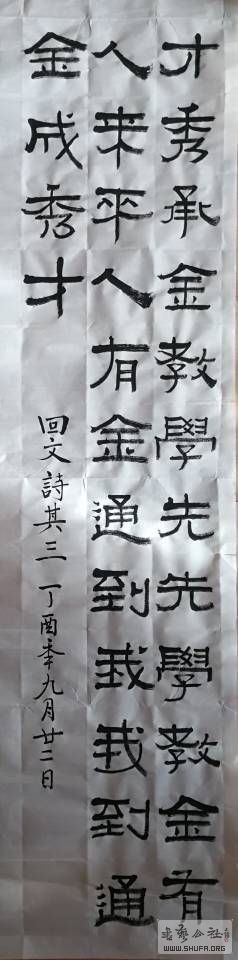 才秀承金教學先先學教金有
人来平人有金通到我我到通
金成秀才
回文詩其三 丁酉秊九月廿二日
公社
WWW.SHUFA.ORG